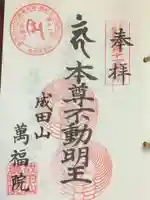 奉拝
本尊不動明王
成田山
萬福院